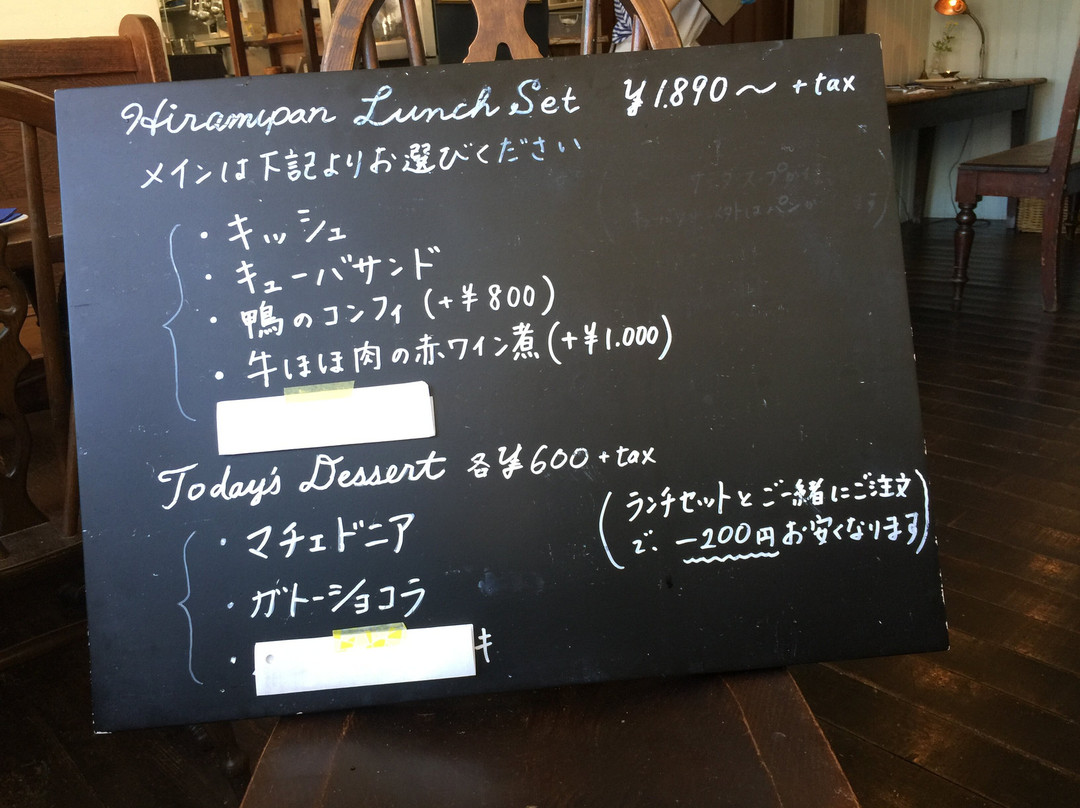 Hiramipan Lunch Set ¥1.890〜 +tax
メインは下記よりお選びください
・キッシュ
・キューバサンド
・鴨のコンフィ (+¥800)
・牛ほほ肉の赤ワイン煮 (+¥1.000)
Today's Dessert 各¥600 +tax
(ランチセットとご一緒にご注文
で、−200円お安くなります)
・マチェドニア
・ガトーショコラ
・ キ